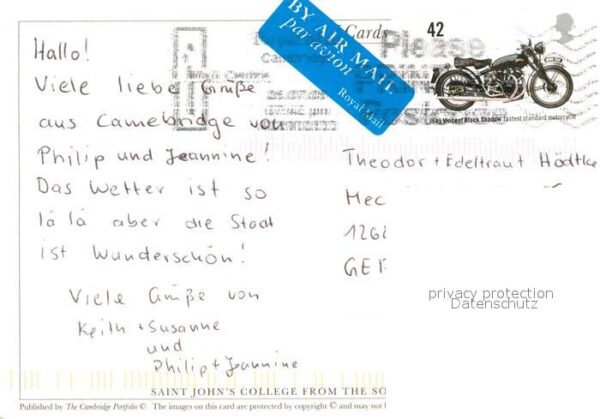 Hallo!
Viele liebe Grüße
aus Camebridge von
Philip und Jeannine!
Das Wetter ist so
lá lá aber die Stadt
ist Wunderschön!
Viele Grüße von
Keith + Susanne
und
Philip + Jeannine
BY AIR MAIL
par avion
Royal Mail
Cards
Please
42
1949 Vincent Black Shadow, fastest standard motorcycle
Theodor + Edeltraut Hödtke
Mec
1262
GER
privacy protection
Datenschutz
SAINT JOHN'S COLLEGE FROM THE SO
Published by The Cambridge Portfolio © The images on this card are protected by copyright © and may not